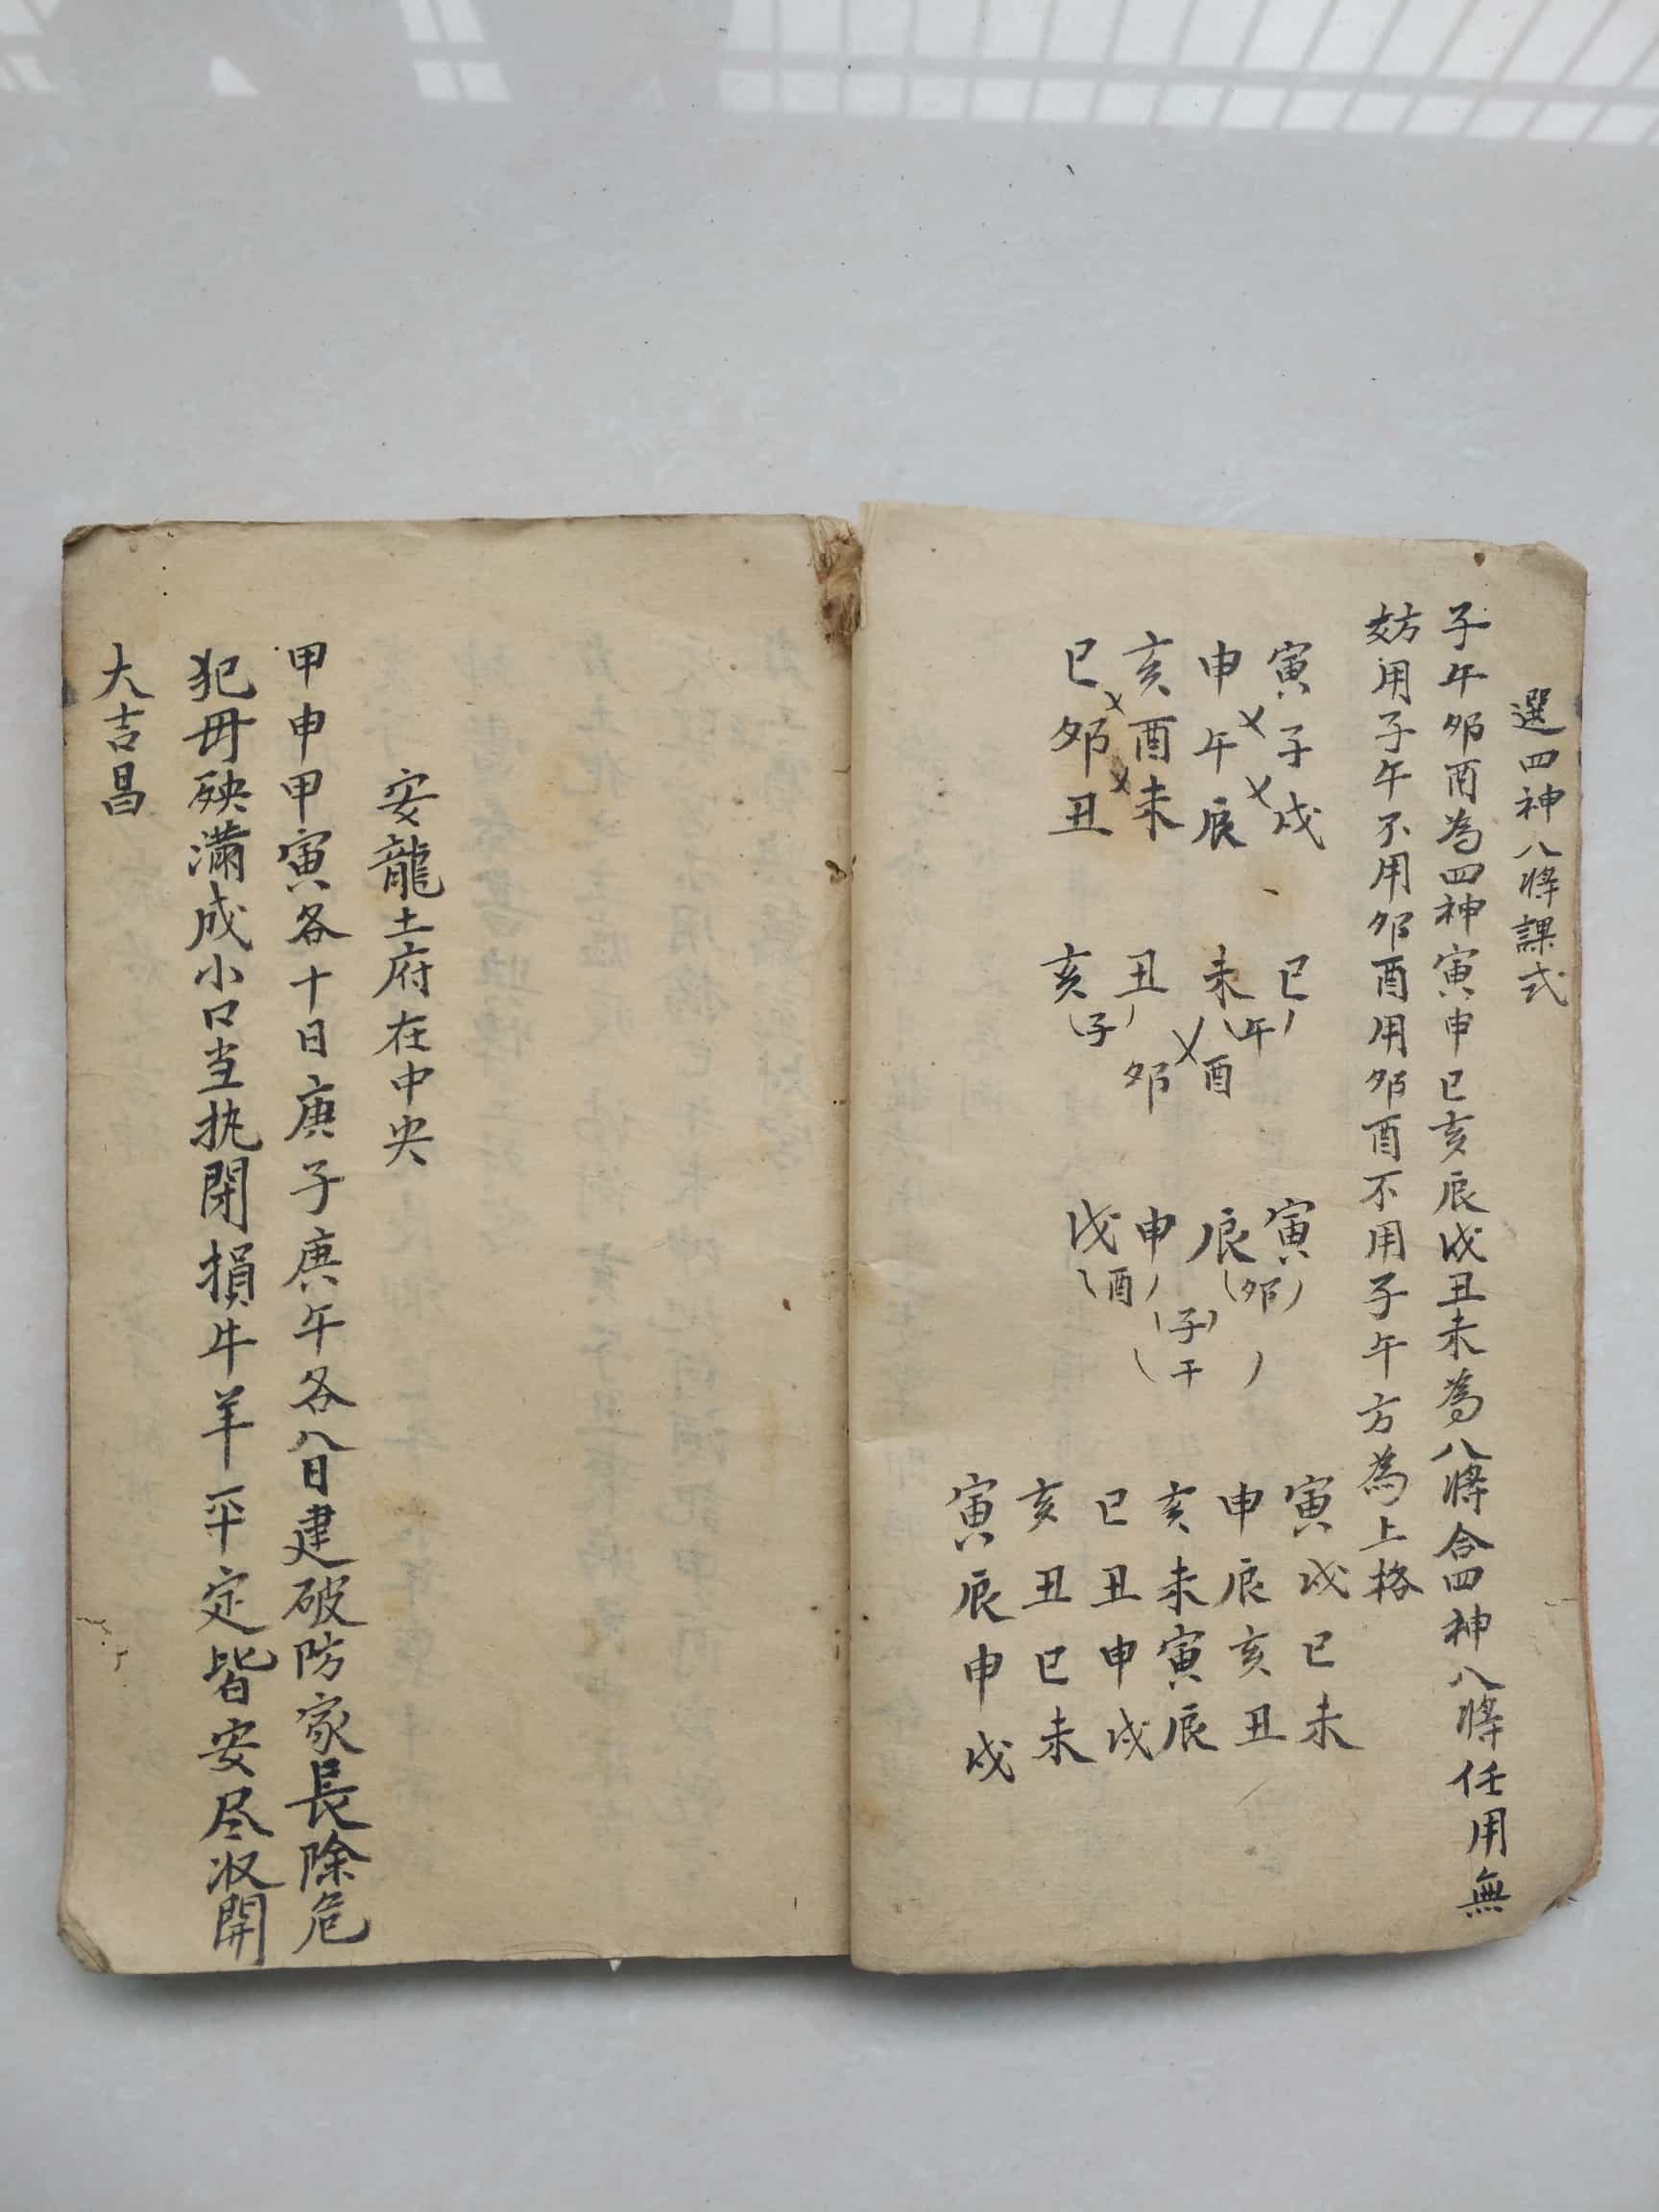 選四神八將課式
子午夘酉為四神寅申巳亥辰戌丑未為八將合四神八將任用無
妨用子午不用夘酉用夘酉不用子午方為上格
寅子戌
申午辰
亥酉未
巳夘丑
巳(午)未
酉
丑(子)亥
夘
寅(夘)辰
申(酉)戌
(子)
(午)
寅戌巳未
申辰亥丑
亥未寅辰
巳丑申戌
亥丑巳未
寅辰申戌
安龍土府在中央
甲申甲寅各十日庚子庚午各八日建破防家長除危
犯毋殃滿成小口当执閉損牛羊平定皆安尽收開
大吉昌